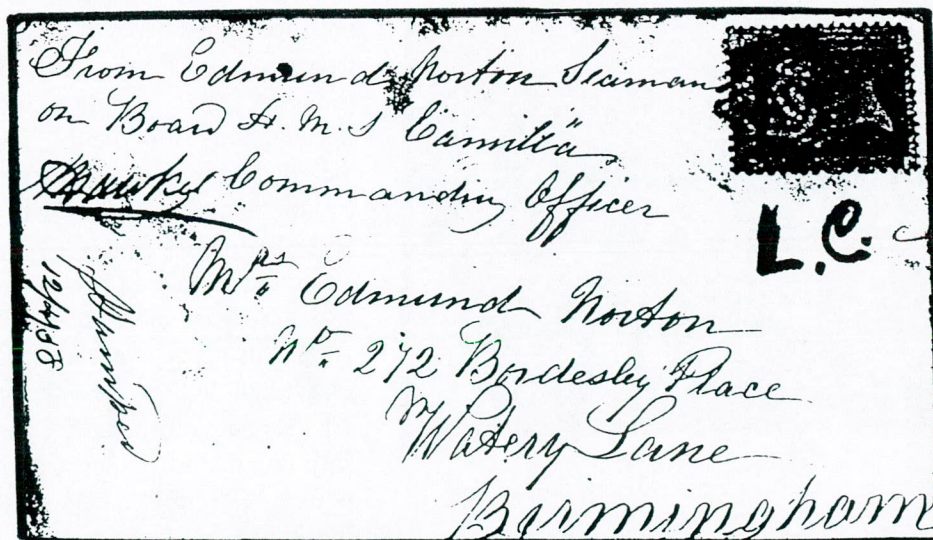 From Edmund Norton Seaman
on Board H. M. S "Camilla"
Commanding Officer
L.C.
Mrs Edmund Norton
No 272 Bordesley Place
Watery Lane
Birmingham